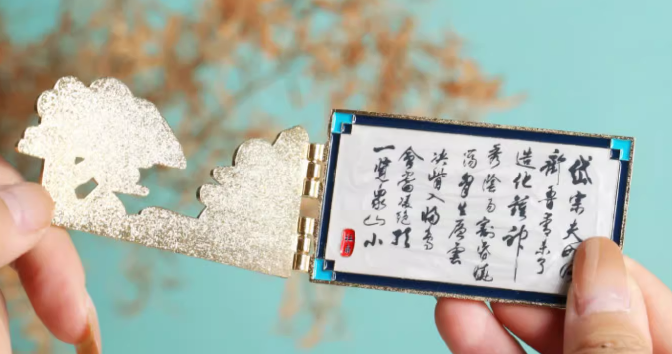 岱宗夫如
齊魯青未了
造化鍾神
秀陰陽割昏曉
蕩胸生層雲
決眥入歸鳥
會當凌絕頂
一覽眾山小